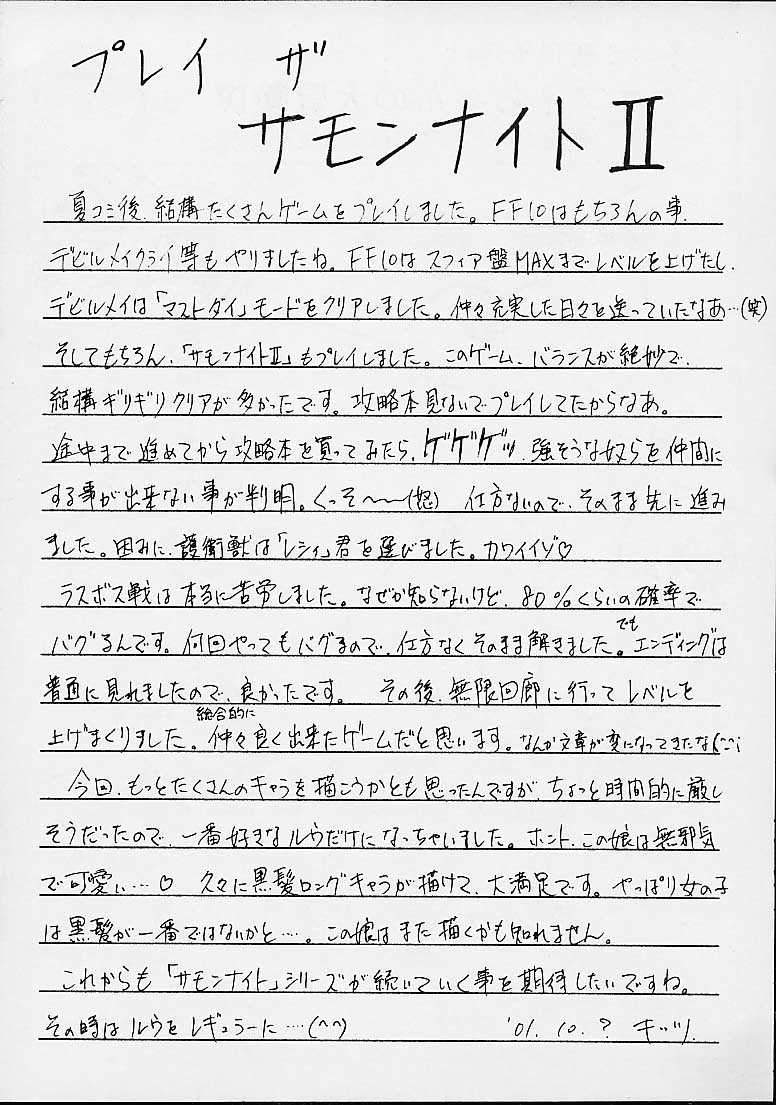 プレイ ザ
サモンナイトⅡ
夏コミ後、結構たくさんゲームをプレイしました。FF10はもちろんの事、
デビルメイクライ等もやりましたね。FF10はスフィア盤MAXまでレベルを上げたし、
デビルメイは「マストダイ」モードをクリアしました。仲々充実した日々を送っていたなあ…(笑)
そしてもちろん、「サモンナイトⅡ」もプレイしました。このゲーム、バランスが絶妙で、
結構ギリギリクリアが多かったです。攻略本見ないでプレイしてたからなあ。
途中まで進めてから攻略本を買ってみたら、ゲゲゲッ、強そうな奴らを仲間に
する事が出来ない事が判明。くっそ〜〜(怒) 仕方ないので、そのまま先に進み
ました。因みに、護衛獣は「レシィ」君を選びました。カワイイゾ♡
ラスボス戦は本当に苦労しました。なぜか知らないけど、80%くらいの確率で
バグるんです。何回やってもバグるので、仕方なくそのまま解きました。でもエンディングは
普通に見れましたので、良かったです。 その後、無限回廊に行ってレベルを
上げまくりました。総合的に仲々良く出来たゲームだと思います。なんか文章が変になってきたな(^^;
今回、もっとたくさんのキャラを描こうかとも思ったんですが、ちょっと時間的に厳し
そうだったので、一番好きなルウだけになっちゃいました。ホント、この娘は無邪気
で可愛い…♡ 久々に黒髪ロングキャラが描けて、大満足です。やっぱり女の子
は黒髪が一番ではないかと…。この娘はまた描くかも知れません。
これからも「サモンナイト」シリーズが続いていく事を期待したいですね。
その時はルウをレギュラーに…(^^) '01.10.? キッツ.